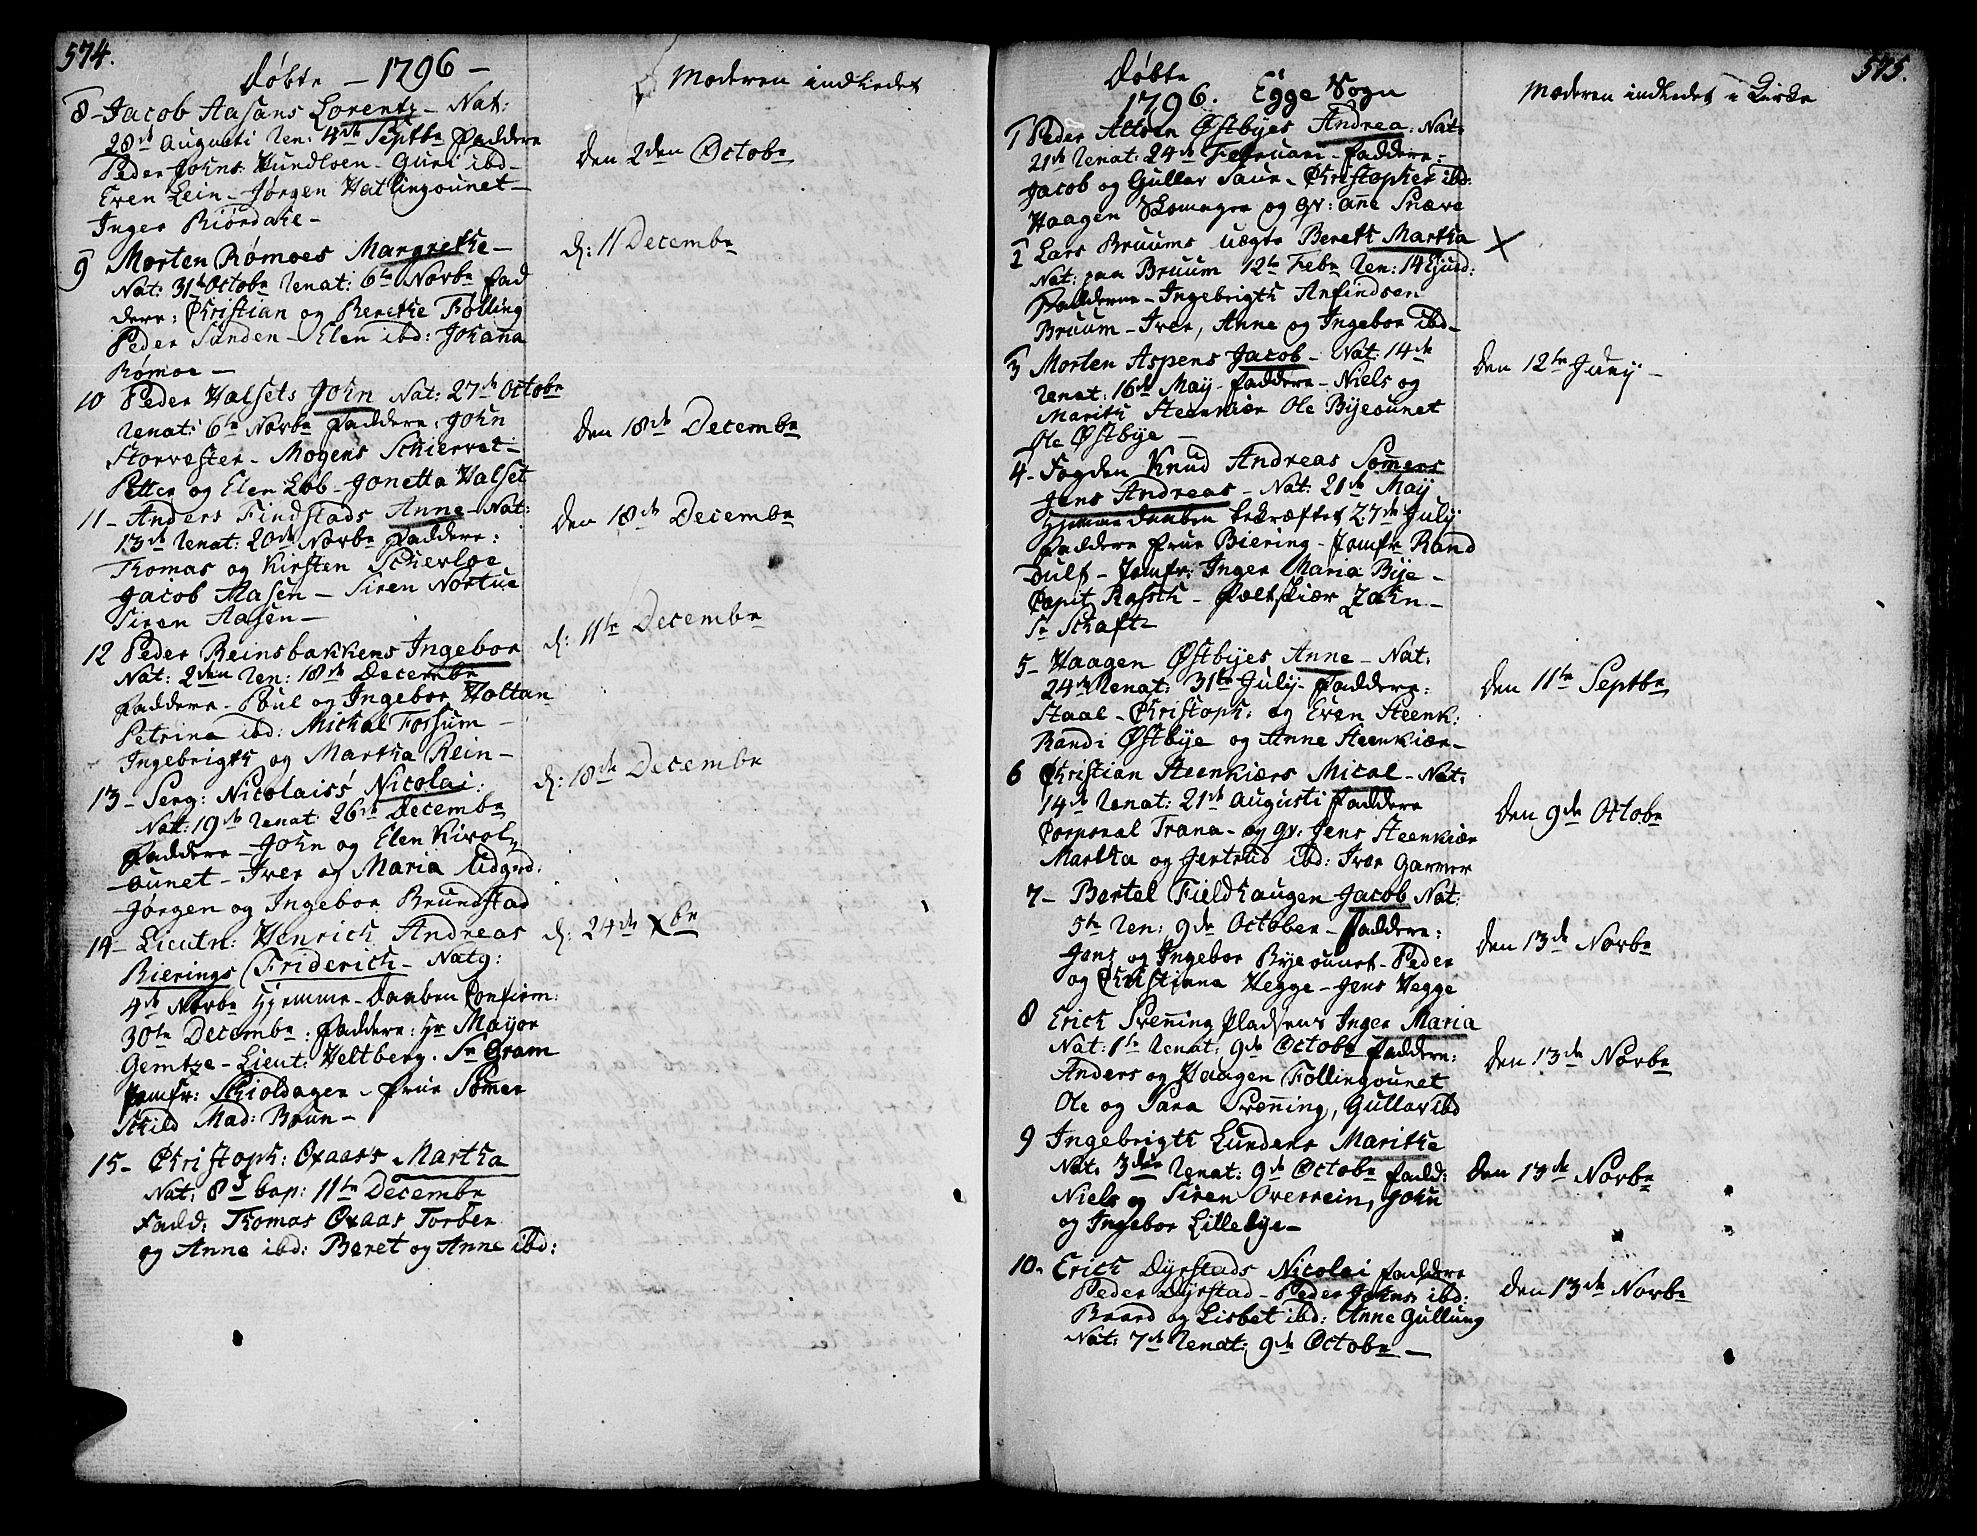 574.
Døbte - 1796 -
Moderen indledet
8 - Jacob Aasans Lorentz - Nat:
28de Augusti Renat: 4de Septbr Faddere
Peder Johns: Hundloen - Guri ibd -
Even Lein - Jørgen Hatlingounet -
Inger Kiørdahe -
den 2den Octobr
9 Morten Rømoes Margrethe -
Nat: 31te Octobr Renat: 6te Novbr Fad
dere: Christian og Berethe Følling
Peder Sunden - Elen ibd: Johana
Rømoe -
d: 11 Decembr
10 Peder Halsets John Nat: 27de Octobr
Renat: 6te Novbr Faddere, John
Storvester - Mogens Schiervet -
Petter og Elen Løb - Jonetta Halset
den 18de Decembr
11 - Anders Findstads Anne - Nat:
13de Renat: 20de Novbr Faddere:
Thomas og Kirsten Scherloe
Jacob Aasen - Siren Nortue
Siren Aasen -
den 18de Decembr
12 Peder Reinsbakkens Ingebor
Nat: 2den Ren: 18de Decembr
Faddere - Poul og Ingebor Holtan
Petrina ibd: Michal Forsum -
Ingebrigth og Martha Rein -
d: 11te Decembr
13 - Serg: Nicolaiss Nicolai:
Nat: 19de Renat: 26de Decembr
Faddere - John og Elen Kirol,
ounet - Iver og Maria Udgrd:
Jørgen og Ingebor Brundstad
d: 18de Decembr
14 - Lieutn: Henrich Andreas
Bierings Friderich - Natg:
4de Novbr Hjemme-Daaben Confirm:
30te Decembr: Faddere: Hr Mayor
Gemtze - Lieut: Heltberg. Sr Gram
Jomfr: Schioldager - Frue Sommer
Schild Mad: Brun -
d: 24de Xbr
15 - Christoph: Oxaass Martha
Nat: 8de bap: 11te Decembr
Fadd: Thomas Oxaas Torber
og Anne ibd: Beret og Anne ibd:
575.
Døbte
1796. Egge Sogn
Moderen indledet i Kirke
1 Peder Altsen Østbyes Andrea: Nat:
21de Renat: 24de Februari - Faddere:
Jacob og Gullov Saur - Christopher ibd:
Haagen Skomager og Gv: Anne Snæve
2 Lars Bruums uægte Bereth Martha
Nat: paa Bruum 12te Febr Ren: 14 Ejusd:
Fadderne - Ingebrigth Anfindsen
Bruum - Iver, Anne og Ingebor ibd -
3 Morten Aspens Jacob - Nat: 14de
Renat: 16de May - Faddere - Niels og
Marith Steenkiær Ole Byeounet
Ole Østbye -
den 12te Juny -
4 - Fogden Knud Andreas Sommers
Jens Andreas - Nat: 21de May
Hjemme daaben bekræftet 27de July
Faddere Frue Biering - Jomfr Rand
Dulf - Jomfr: Inger Maria Bye -
Capit Rasch - Feltskiær Zahn -
Sr Schaft
5 - Haagen Østbyes Anne - Nat:
24de Renat: 31te July - Faddere:
Staal - Christoph: og Even Steenk:
Randi Østbye og Anne Steenkiær -
den 11te Septbr
6 Christian Steenkiærs Mical - Nat:
14de Renat: 21de Augusti Faddere
Corporal Trana - og gv: Jens Steenkiær
Martha og Jertrud ibd: Iver Garmer
den 9de Octobr
7 - Bertel Fieldhaugen Jacob Nat:
5te Ren: 9de October - Faddere:
Jens og Ingebor Byeounet - Peder
og Christiana Hegge - Jens Hegge
den 13de Novbr
8 Erich Svenning Pladsens Inger Maria
Nat: 1te Renat: 9de Octobr Faddere:
Anders og Haagen Follingounet
Ole og Sara Svenning, Gullov ibd
den 13de Novbr
9 Ingebrigth Lundens Marithe
Nat: 3die Renat: 9de Octobr Fadd:
Niels og Siren Overrein, John
og Ingebor Lillebye -
den 13de Novbr
10 - Erich Dyrstads Nicolai Faddere
Peder Dyrstad - Peder Johns: ibd:
Baard og Lisbet ibd: Anne Gullung
Nat: 7de Renat: 9de Octobr -
den 13de Novbr